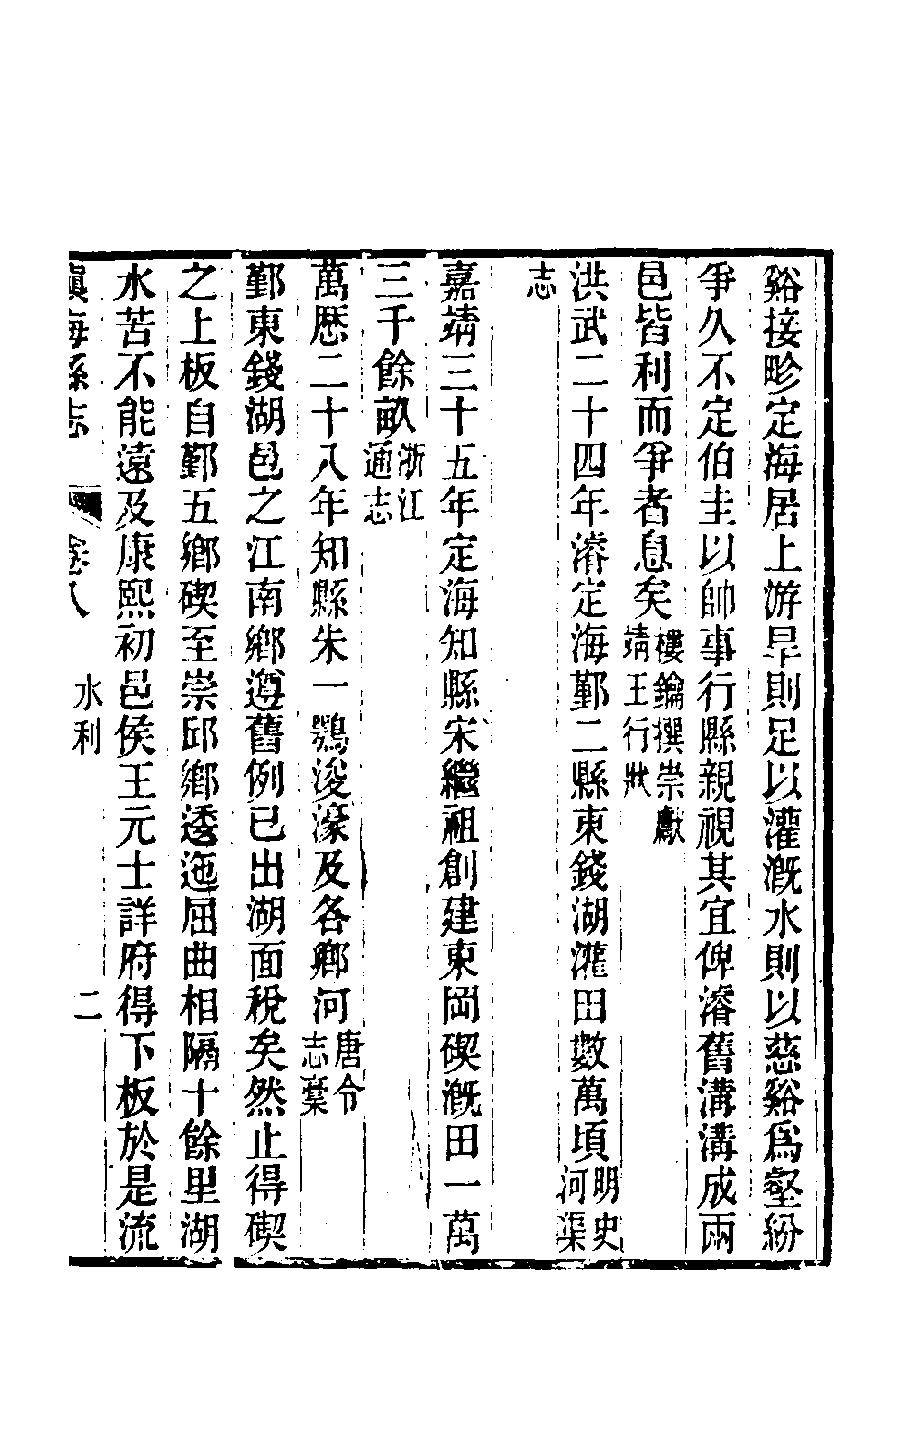 谿接畛定海居上游旱則足以灌漑水則以慈谿爲壑紛
爭久不定伯圭以帥事行縣親視其宜俾濬舊溝溝成兩
邑皆利而爭者息矣樓鑰撰崇憲靖王行狀
洪武二十四年濬定海鄞二縣東錢湖灌田數萬頃明史河渠
志
嘉靖三十五年定海知縣宋繼祖創建東岡碶漑田一萬
三千餘畝浙江通志
萬歷二十八年知縣朱一鶚浚濠及各鄉河唐令志稾
鄞東錢湖邑之江南鄉遵舊例已出湖面稅矣然止得碶
之上板自鄞五鄉碶至崇邱鄉透迤屈曲相隔十餘里湖
水苦不能遠及康熙初邑侯王元士詳府得下板於是流
鎭海縣志 卷八 水利 二